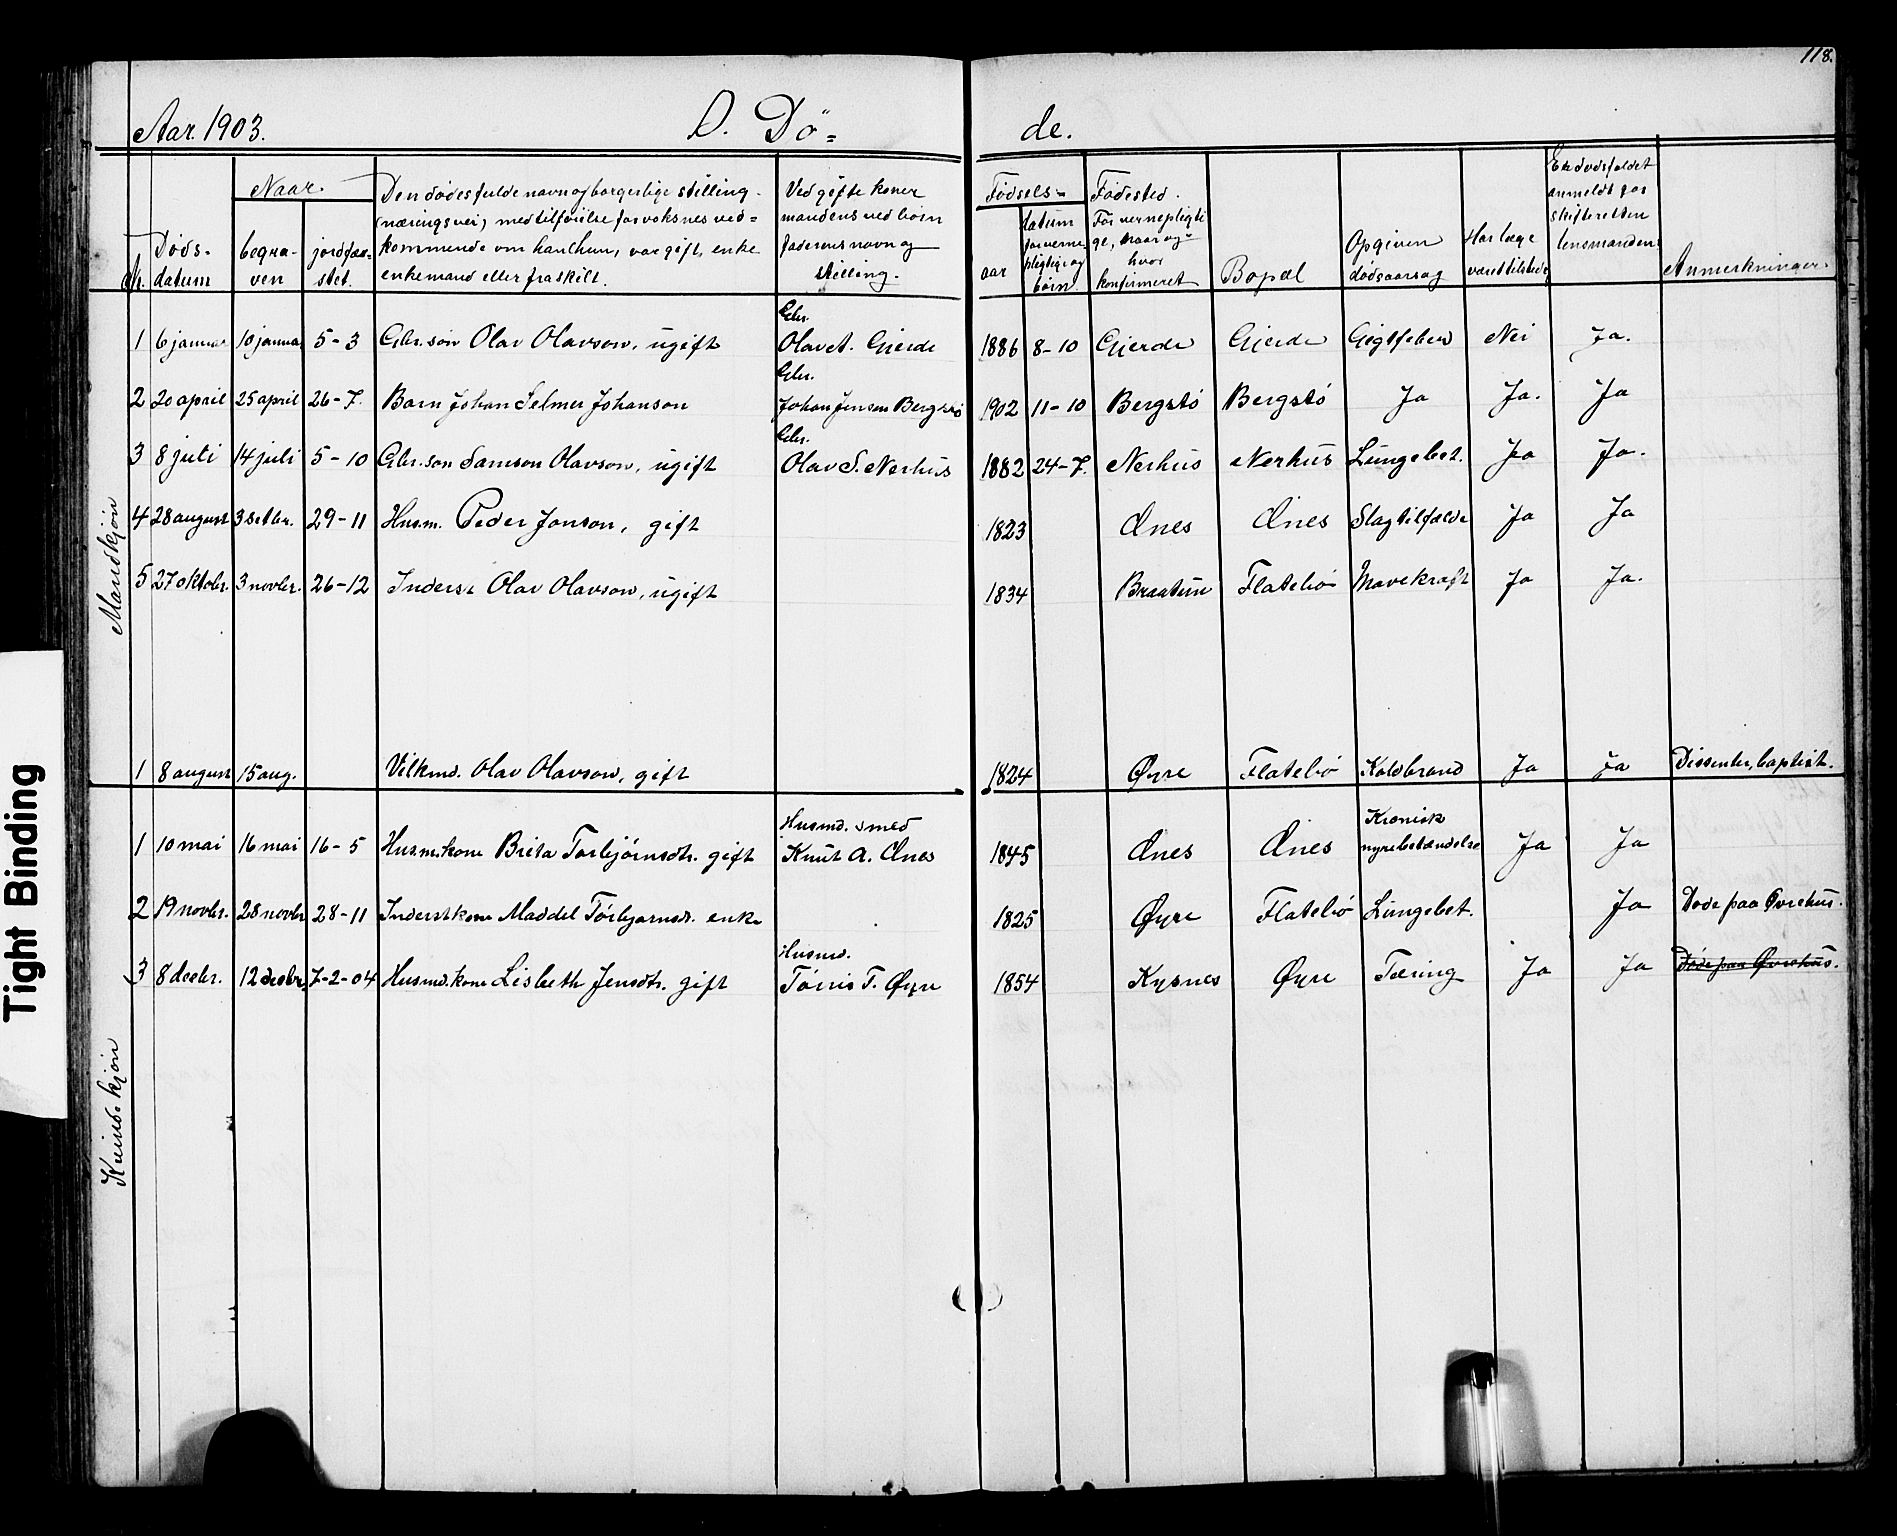 118.
Aar. 1903.
D. Dö=
de.
Nr.
Døds-
datum
Naar.
begra-
ven
jordfæs-
tet.
Den dødes fulde navn og borgerlige stilling
(næringsvei) med tilføielse for voksnes ved=
kommende om han/hun, var gift, enke
enkemand eller fraskilt.
Ved gifte koner
mandens ved børn
faderens navn og
stilling.
Fødsels-
aar
datum
for verne
pligtige og
børn.
Fødested.
For vernepligti
ge, naar og
hvor
konfirmeret
Bopæl
Opgiven
dødsaarsag
Har læge
været tilstede
Er dødsfaldet
anmeldt for
skifteretten
lensmanden
Anmerkninger.
Mandkjøn
1 6 januar 10 januar 5-3 Gbr. søn Olav Olavson, ugift Gbr. Olav A. Gjerde 1886 8-10 Gjerde Gjerde Gigtfeber Nei Ja.
2 20 april 25 april 26-7. Barn Johan Selmer Johanson Gbr. Johan Jensen Bergstø 1902 11-10 Bergstø Bergstø Ja Ja. Ja
3 8 juli 14 juli 5-10 Gbr. søn Samson Olavson, ugift Gbr. Olav S. Nerhus 1882 24-7. Nerhus Nerhus Lungebet. Ja Ja.
4 28 august 3 setbr. 29-11 Husm. Peder Jonson, gift 1823 Ænes Ænes Slagtilfælde Ja Ja
5 27 oktobr. 3 novbr. 26-12 Inderst Olav Olavson, ugift 1834 Braatun Flatebø Mavekræft Ja Ja.
1 8 august 15 aug. Vilkmd. Olav Olavson, gift 1824 Øyre Flatebø Koldbrand Ja Ja Dissenter, baptist.
Kvindekjøn
1 10 mai 16 mai 16-5 Husm.kone Brita Torbjørnsdtr. gift Husmd. smed Knut A. Ænes 1845 Ænes Ænes Kronisk nyrebetændelse Ja Ja
2 19 novbr. 28 novbr 28-11 Inderstkone Maddel Torbjørnsdr. enke 1825 Øyre Flatebø Lungebet. Ja Døde paa Øvrehus.
3 8 decbr. 12 decbr. 7-2-04 Husmd.kone Lisbeth Jensdtr. gift Husmd. Tørris T. Øyre 1854 Kysnes Øyre Tæring Ja Ja Døde paa Øvrehus.
Tight Binding